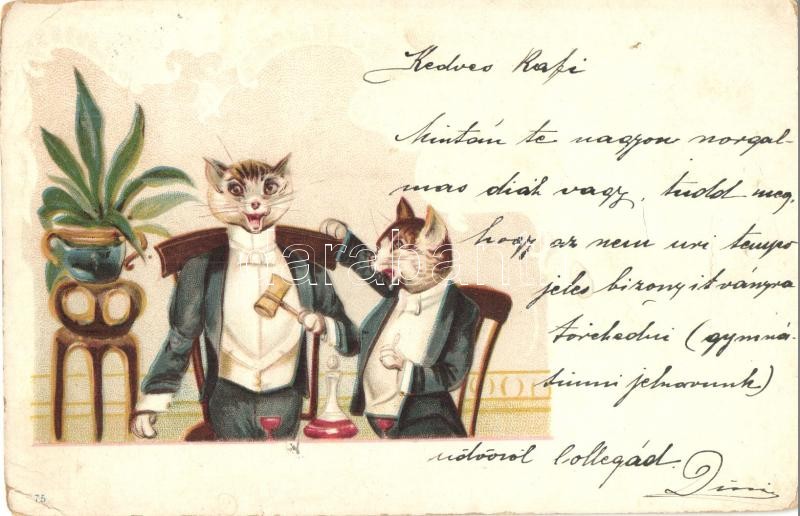 Kedves Rafi
Mintán te nagyon norgal-
mas diák vagy, tudd meg,
hogy az nem uri tempo
jeles bizonyitványra
törekedni (gymná-
siumi jelszavunk)
üdvözöl kollegád
Dini
75